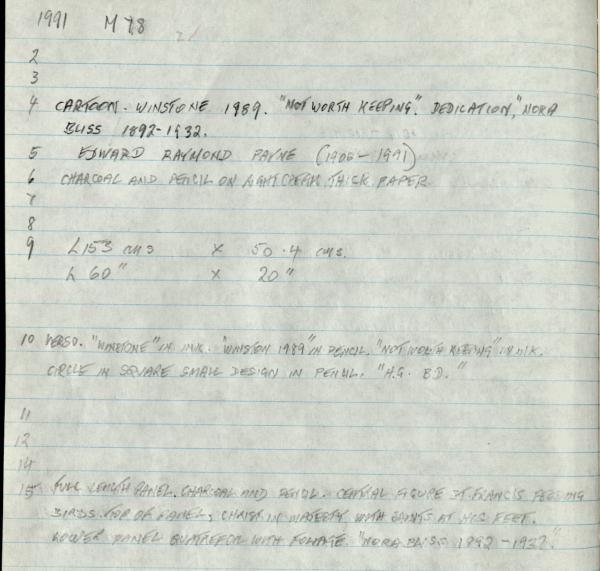 1991 M 78
2
3
4 CARTOON. WINSTONE 1989. "NOT WORTH KEEPING". DEDICATION, "NORA
BLISS 1892-1932.
5 EDWARD RAYMOND PAYNE (1906-1991)
6 CHARCOAL AND PENCIL ON LIGHT CREAM THICK PAPER
7
8
9 L 153 cms x 50.4 cms.
L 60" x 20"
10 VERSO. "WINSTONE" IN INK. "WINSTON 1989" IN PENCIL. "NOT WORTH KEEPING" IN INK.
CIRCLE IN SQUARE SMALL DESIGN IN PENCIL. "H.G. BD."
11
12
14
15 FULL LENGTH PANEL. CHARCOAL AND PENCIL. CENTRAL FIGURE ST. FRANCIS FEEDING
BIRDS. TOP OF PANEL, CHRIST IN MAJESTY WITH SAINTS AT HIS FEET.
LOWER PANEL QUATREFOIL WITH FOLIATE. "NORA BLISS 1892-1932."